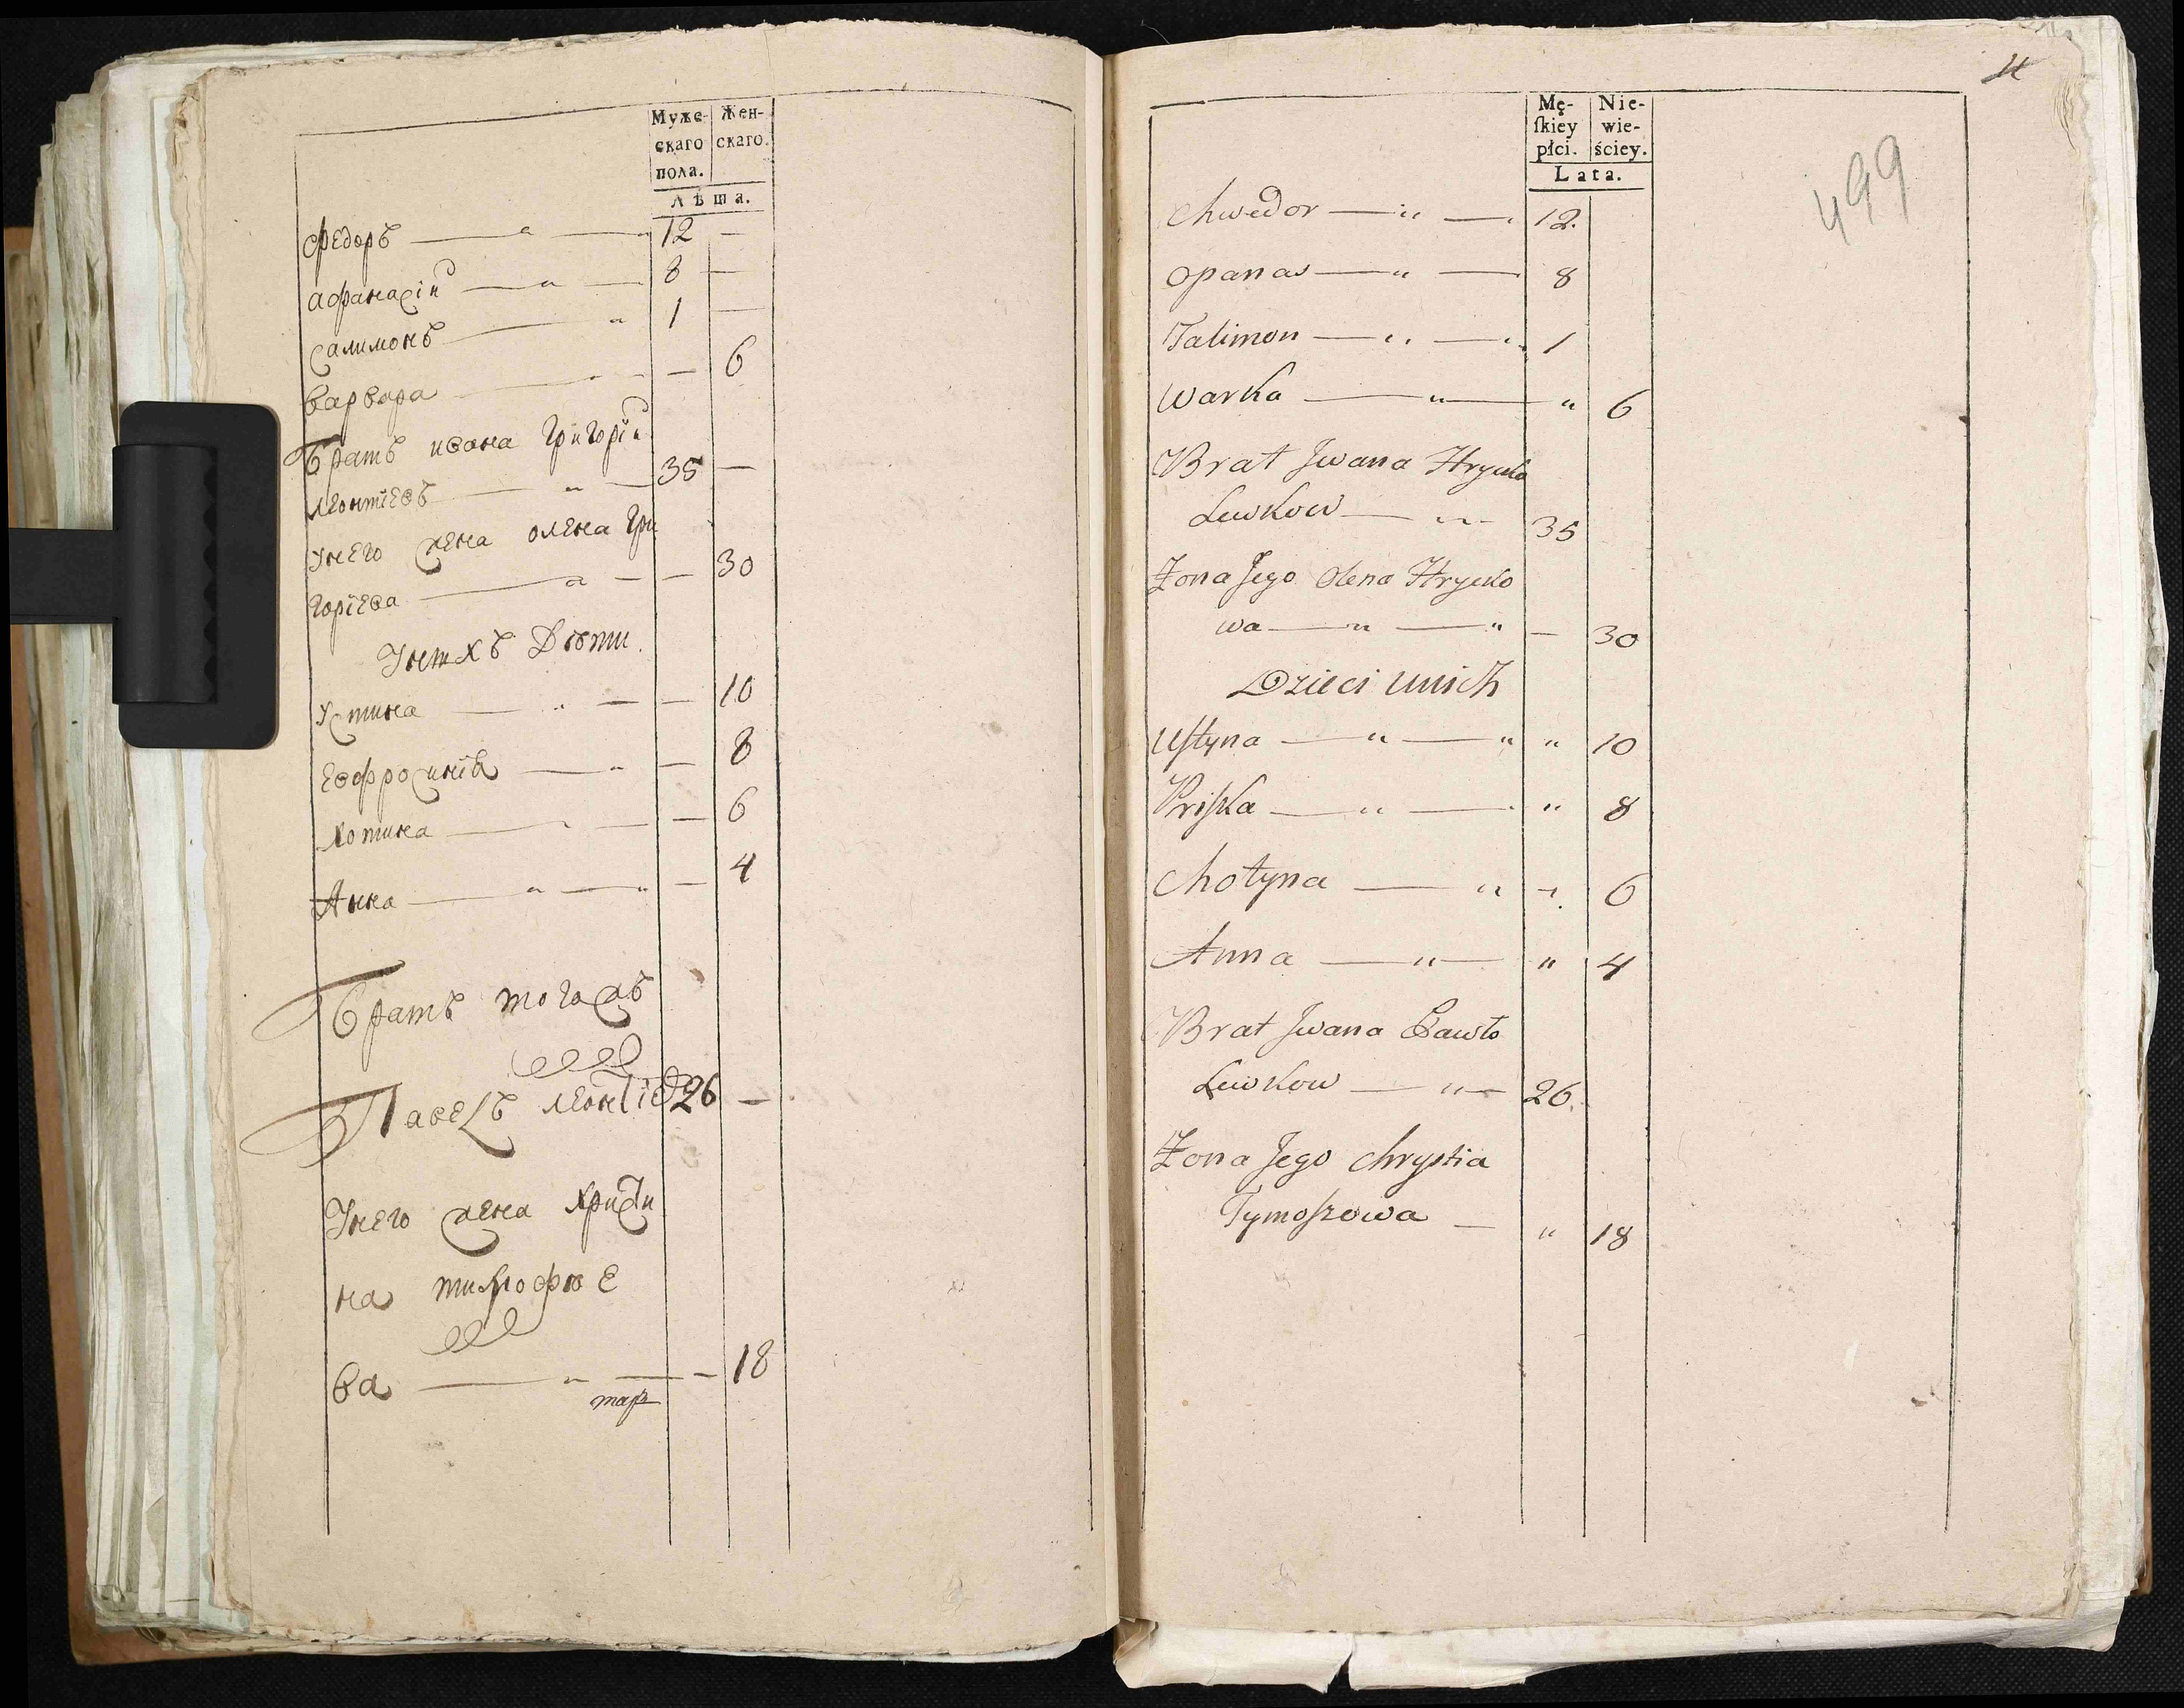 Муже- Жен-
скаго скаго.
пола.
Лѣта.
Федоръ — " — 12 —
Афанасїи — " — 8 —
Салимонъ — " 1 —
Варвара — — 6
Братъ ивана Григорїи
Леонтїевъ — " — 35 —
Унего жена олена Гри
горїева — " — — 30
Унихъ Дѣти.
Устина — " — — 10
Евфросинїѧ — " — 8
Хотина — — — 6
Анна — " — " — 4
Братъ тогожъ
Павелъ леонтїев 26 —
Унего жена Христи
на тимофѣе
ва — " — — 18
Mę- Nie-
ſkiey wie-
płci. ściey.
Lata.
Chwedor — " — 12.
Opanas — " — 8
Talimon — " — " 1
Warka — " — " 6
Brat Jwana Hrycko
Lewkow — " — 35
Żona Jego Olena Hrycko
wa — " — " — 30
Dzieci unich
Uſtyna — " — " " 10
Priſka — " — " 8
Chotyna — " " 6
Anna — " — " 4
Brat Jwana Pawło
Lewkow — " — 26.
Żona Jego Chrystia
Tymoſzowa — " 18
499